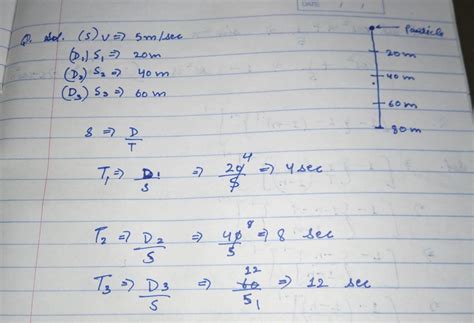 DATE / /
Q. Sol. (S) V ⇒ 5m/sec
(D₁) S₁ ⇒ 20m
(D₂) S₂ ⇒ 40 m
(D₃) S₃ ⇒ 60 m
Particle
20m
40 m
60 m
80 m
S ⇒ D/T
T₁ ⇒ D₁/S ⇒ 20/5 4 ⇒ 4 sec
T₂ ⇒ D₂/S ⇒ 40/5 8 ⇒ 8 sec
T₃ ⇒ D₃/S ⇒ 60/5 12 1 ⇒ 12 sec